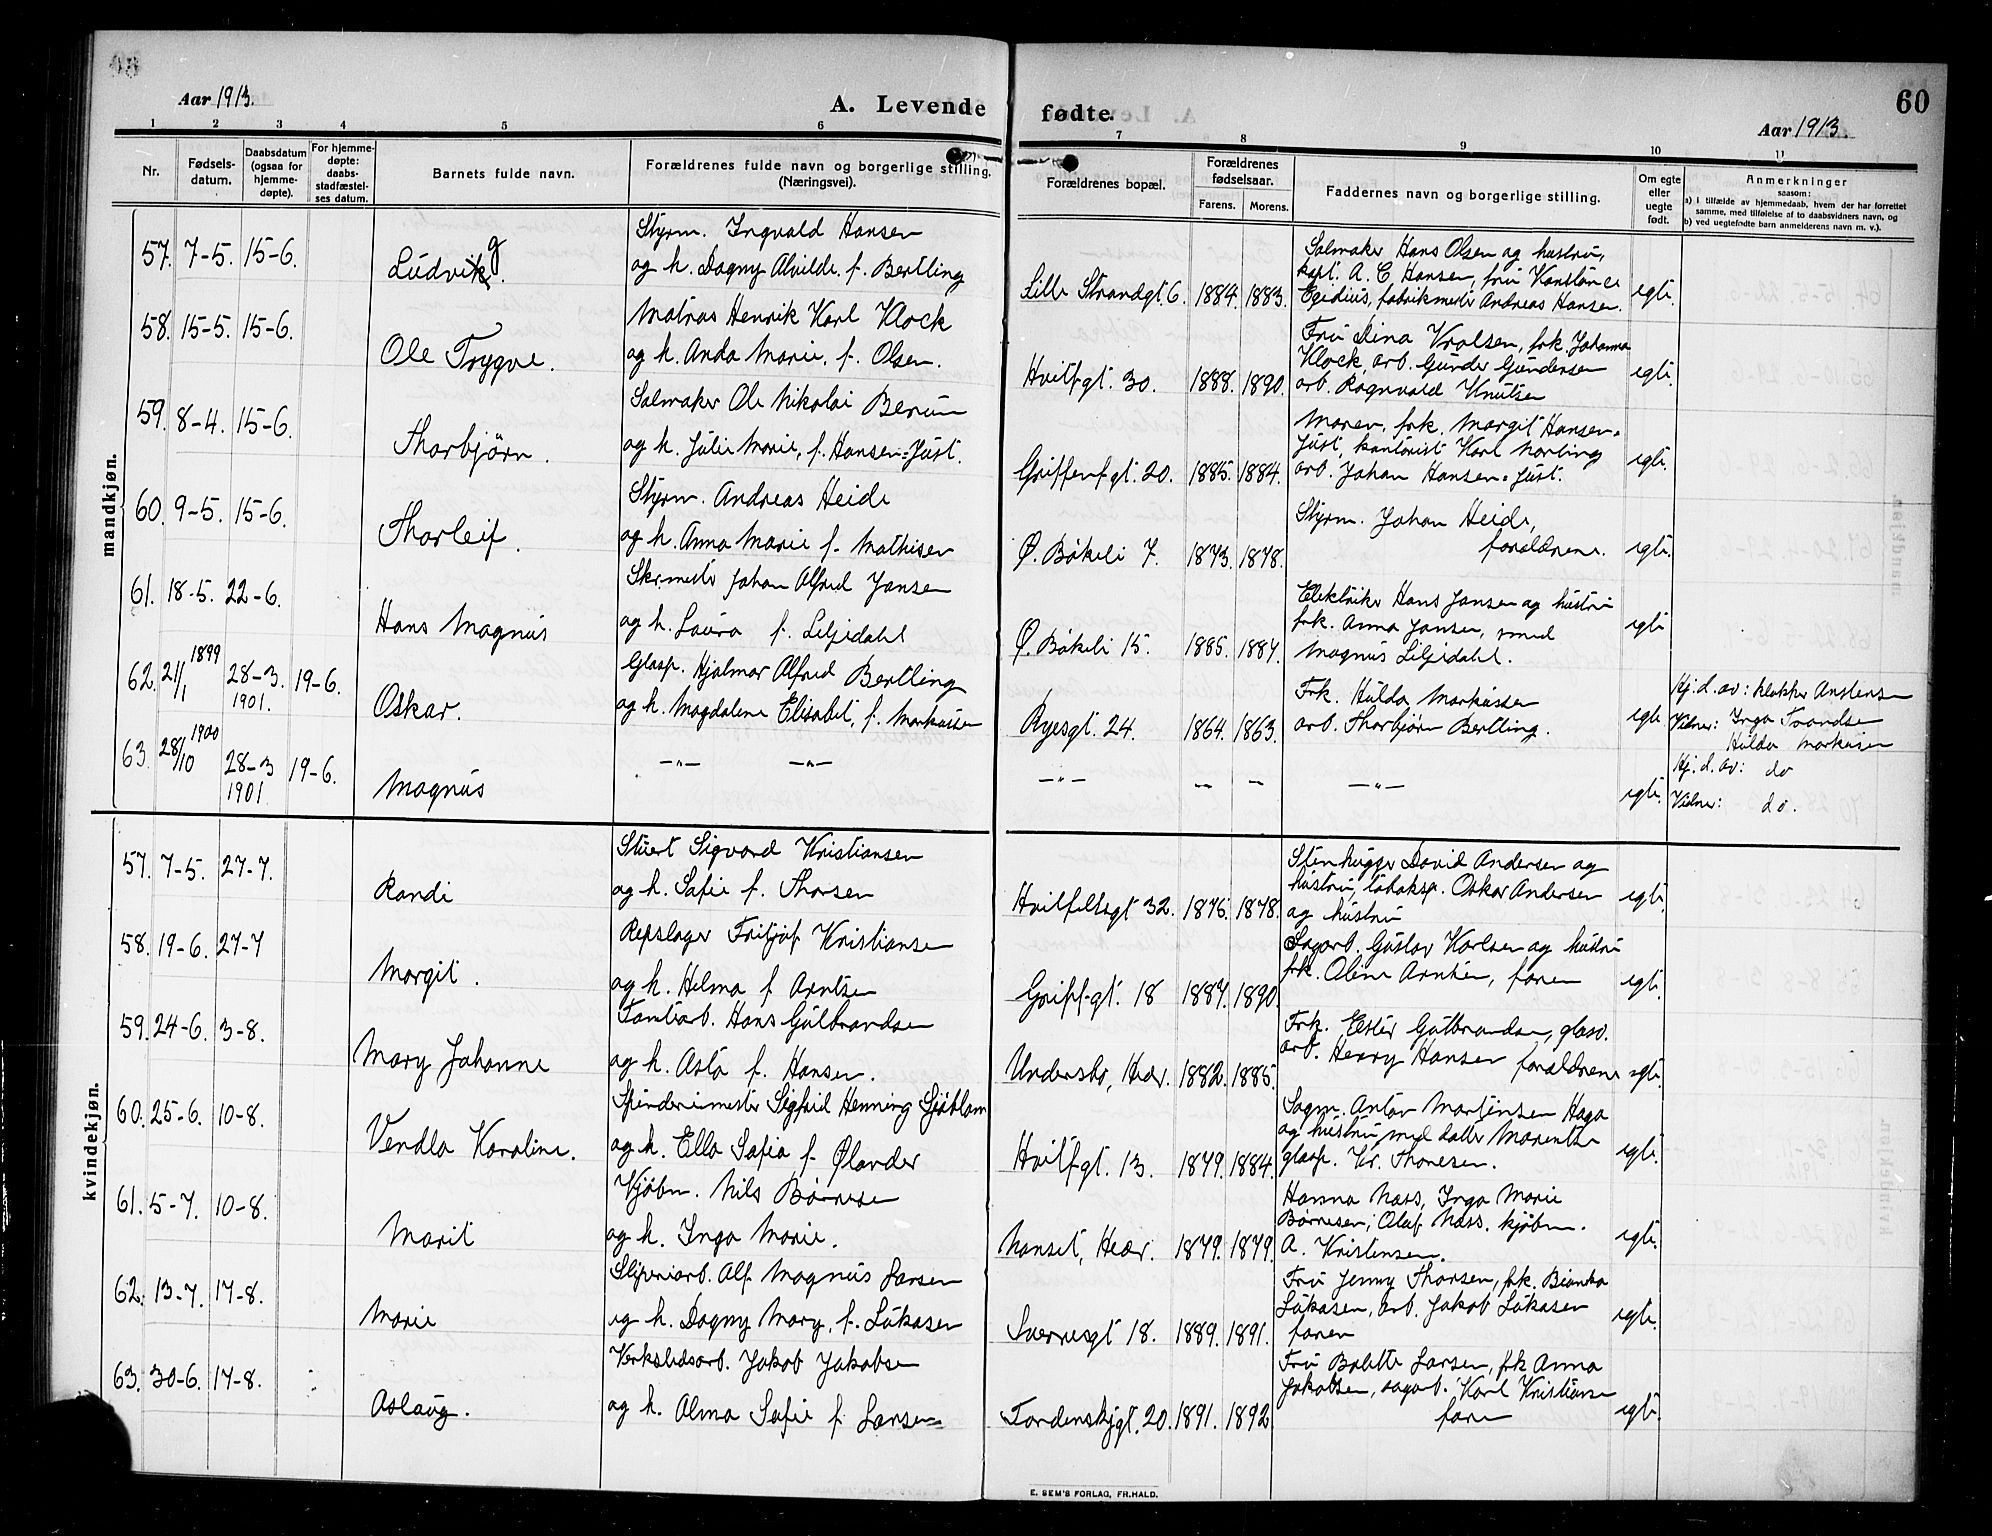 Aar 1913.
A. Levende fødte.
60
Aar 1913.
1 2 3 4 5 6 7 8 9 10 11
Nr.
Fødsels-
datum.
Daabsdatum
(ogsaa for
hjemme-
døpte).
For hjemme-
døpte:
daabs-
stadfæstel-
ses datum.
Barnets fulde navn.
Forældrenes fulde navn og borgerlige stilling.
(Næringsvei).
Forældrenes bopæl.
Forældrenes
fødselsaar.
Farens. Morens.
Faddernes navn og borgerlige stilling.
Om egte
eller
uegte
født.
Anmerkninger
saasom:
a) i tilfælde av hjemmedaab, hvem der har forrettet
samme, med tilføielse af to daabsvidners navn, og
b) ved uegtefødte barn anmelderens navn m. v.).
mandkjøn.
57. 7-5. 15-6. Ludvig.
Styrm. Ingvald Hansen
og h. Dagny Alvilde f. Bertling
Lille Strandgt 6. 1884. 1883.
Salmaker Hans Olsen og hustru,
kapt. A. C Hansen, fru Konstance
Egidius, fabrikmester Andreas Hansen.
egte.
58. 15-5. 15-6. Ole Trygve.
Matros Henrik Karl Klock
og h. Anda Marie, f. Olsen.
Hvitfgt. 30. 1888. 1890.
Fru Dina Vralsen, frk. Johanna
Klock, arb. Gunder Gundersen
arb. Ragnvald Knutsen
egte.
59. 8-4. 15-6. Thorbjørn.
Salmaker Ole Nikolai Berum
og h. Julie Marie, f. Hansen=Just.
Griffenfgt. 20. 1885. 1884.
Moren, frk. Margit Hansen=
Just, kontorist Karl Norling
arb. Johan Hansen=Just.
egte.
60. 9-5. 15-6. Thorleif.
Styrm. Andreas Heide
og h. Anna Marie f. Mathisen
Ø. Bøkeli 7. 1873. 1878.
Styrm. Johan Heide,
forældrene.
egte.
61. 18-5. 22-6. Hans Magnus
Skr.mester Johan Alfred Jansen
og h. Laura f. Liljedahl
Ø. Bøkeli 15. 1885. 1887.
Elektriker Hans Jansen og hustru
frk. Anna Jansen, smed
Magnus Liljedahl.
egte
62. 21/1 1899 28-3. 1901. 19-6. Oskar.
Glasp. Hjalmar Alfred Bertling
og h. Magdalene Elisabet, f. Markussen
Ryesgt. 24. 1864. 1863.
Frk. Hulda Markussen
arb. Thorbjørn Bertling.
egte
Hj. d. av: klokker Anstensen
Vidner: Inga Tvandsen
Hulda Markusen
63. 28/10 1900 28-3 1901. 19-6. Magnus
—"— —"—
—"— — — —"—
egte.
Hj. d. av: do
Vidner: do.
kvindekjøn.
57. 7-5. 27-7. Randi
Stuert Sigvard Kristiansen
og h. Sofie f. Thorsen
Hvitfeltsgt 32. 1876. 1878.
Stenhugger David Andersen og
hustru, tobaksp. Oskar Andersen
og hustru
egte.
58. 19-6. 27-7 Margit.
Repslager Fritjof Kristiansen
og h. Helma f Arntsen
Griff-gt. 18 1887. 1890.
Sagarb. Gustav Karlsen og hustru
frk. Oline Arntsen, faren
egte.
59. 24-6. 3-8. Mary Johanne
Tomtearb. Hans Gulbrandsen
og h. Asta f. Hansen.
Undersbo, Hedr. 1882. 1885.
Frk. Ester Gulbrandsen, glasv.
arb. Henry Hansen forældrene
egte.
60. 25-6. 10-8. Vendla Karoline.
Spinderimester Sigfrid Henning Sjøblom
og h. Ella Sofia f. Ølander
Hvitfgt. 13. 1879. 1884.
Sagm. Anton Martinsen Haga
og hustru med datter Marenthe
glasp. Kr. Thonesen.
egte.
61. 5-7. 10-8. Marit
Kjøbm. Nils Børresen
og h. Inga Marie.
Nanset, Hedr. 1879. 1879.
Hanna Næss, Inga Marie
Børresen, Olaf Næss. kjøbm.
A. Kristensen.
egte.
62. 13-7. 17-8. Marie
Sliperiarb. Alf Magnus Larsen
og h. Dagny Mary, f. Lukasen
Sverresgt 18. 1889. 1891.
Fru Jenny Thorsen, frk. Bianka
Lukasen, arb. Jakob Lukasen
faren
egte.
63. 30-6. 17-8. Aslaug.
Verkstedsarb. Jakob Jakobsen
og h. Alma Sofie f. Larsen
Tordenskjgt. 20. 1891. 1892
Fru Bolette Larsen, frk Anna
Jakobsen, sagarb. Karl Kristiansen
faren
egte.
E. SEM'S FORLAG, FR.HALD.